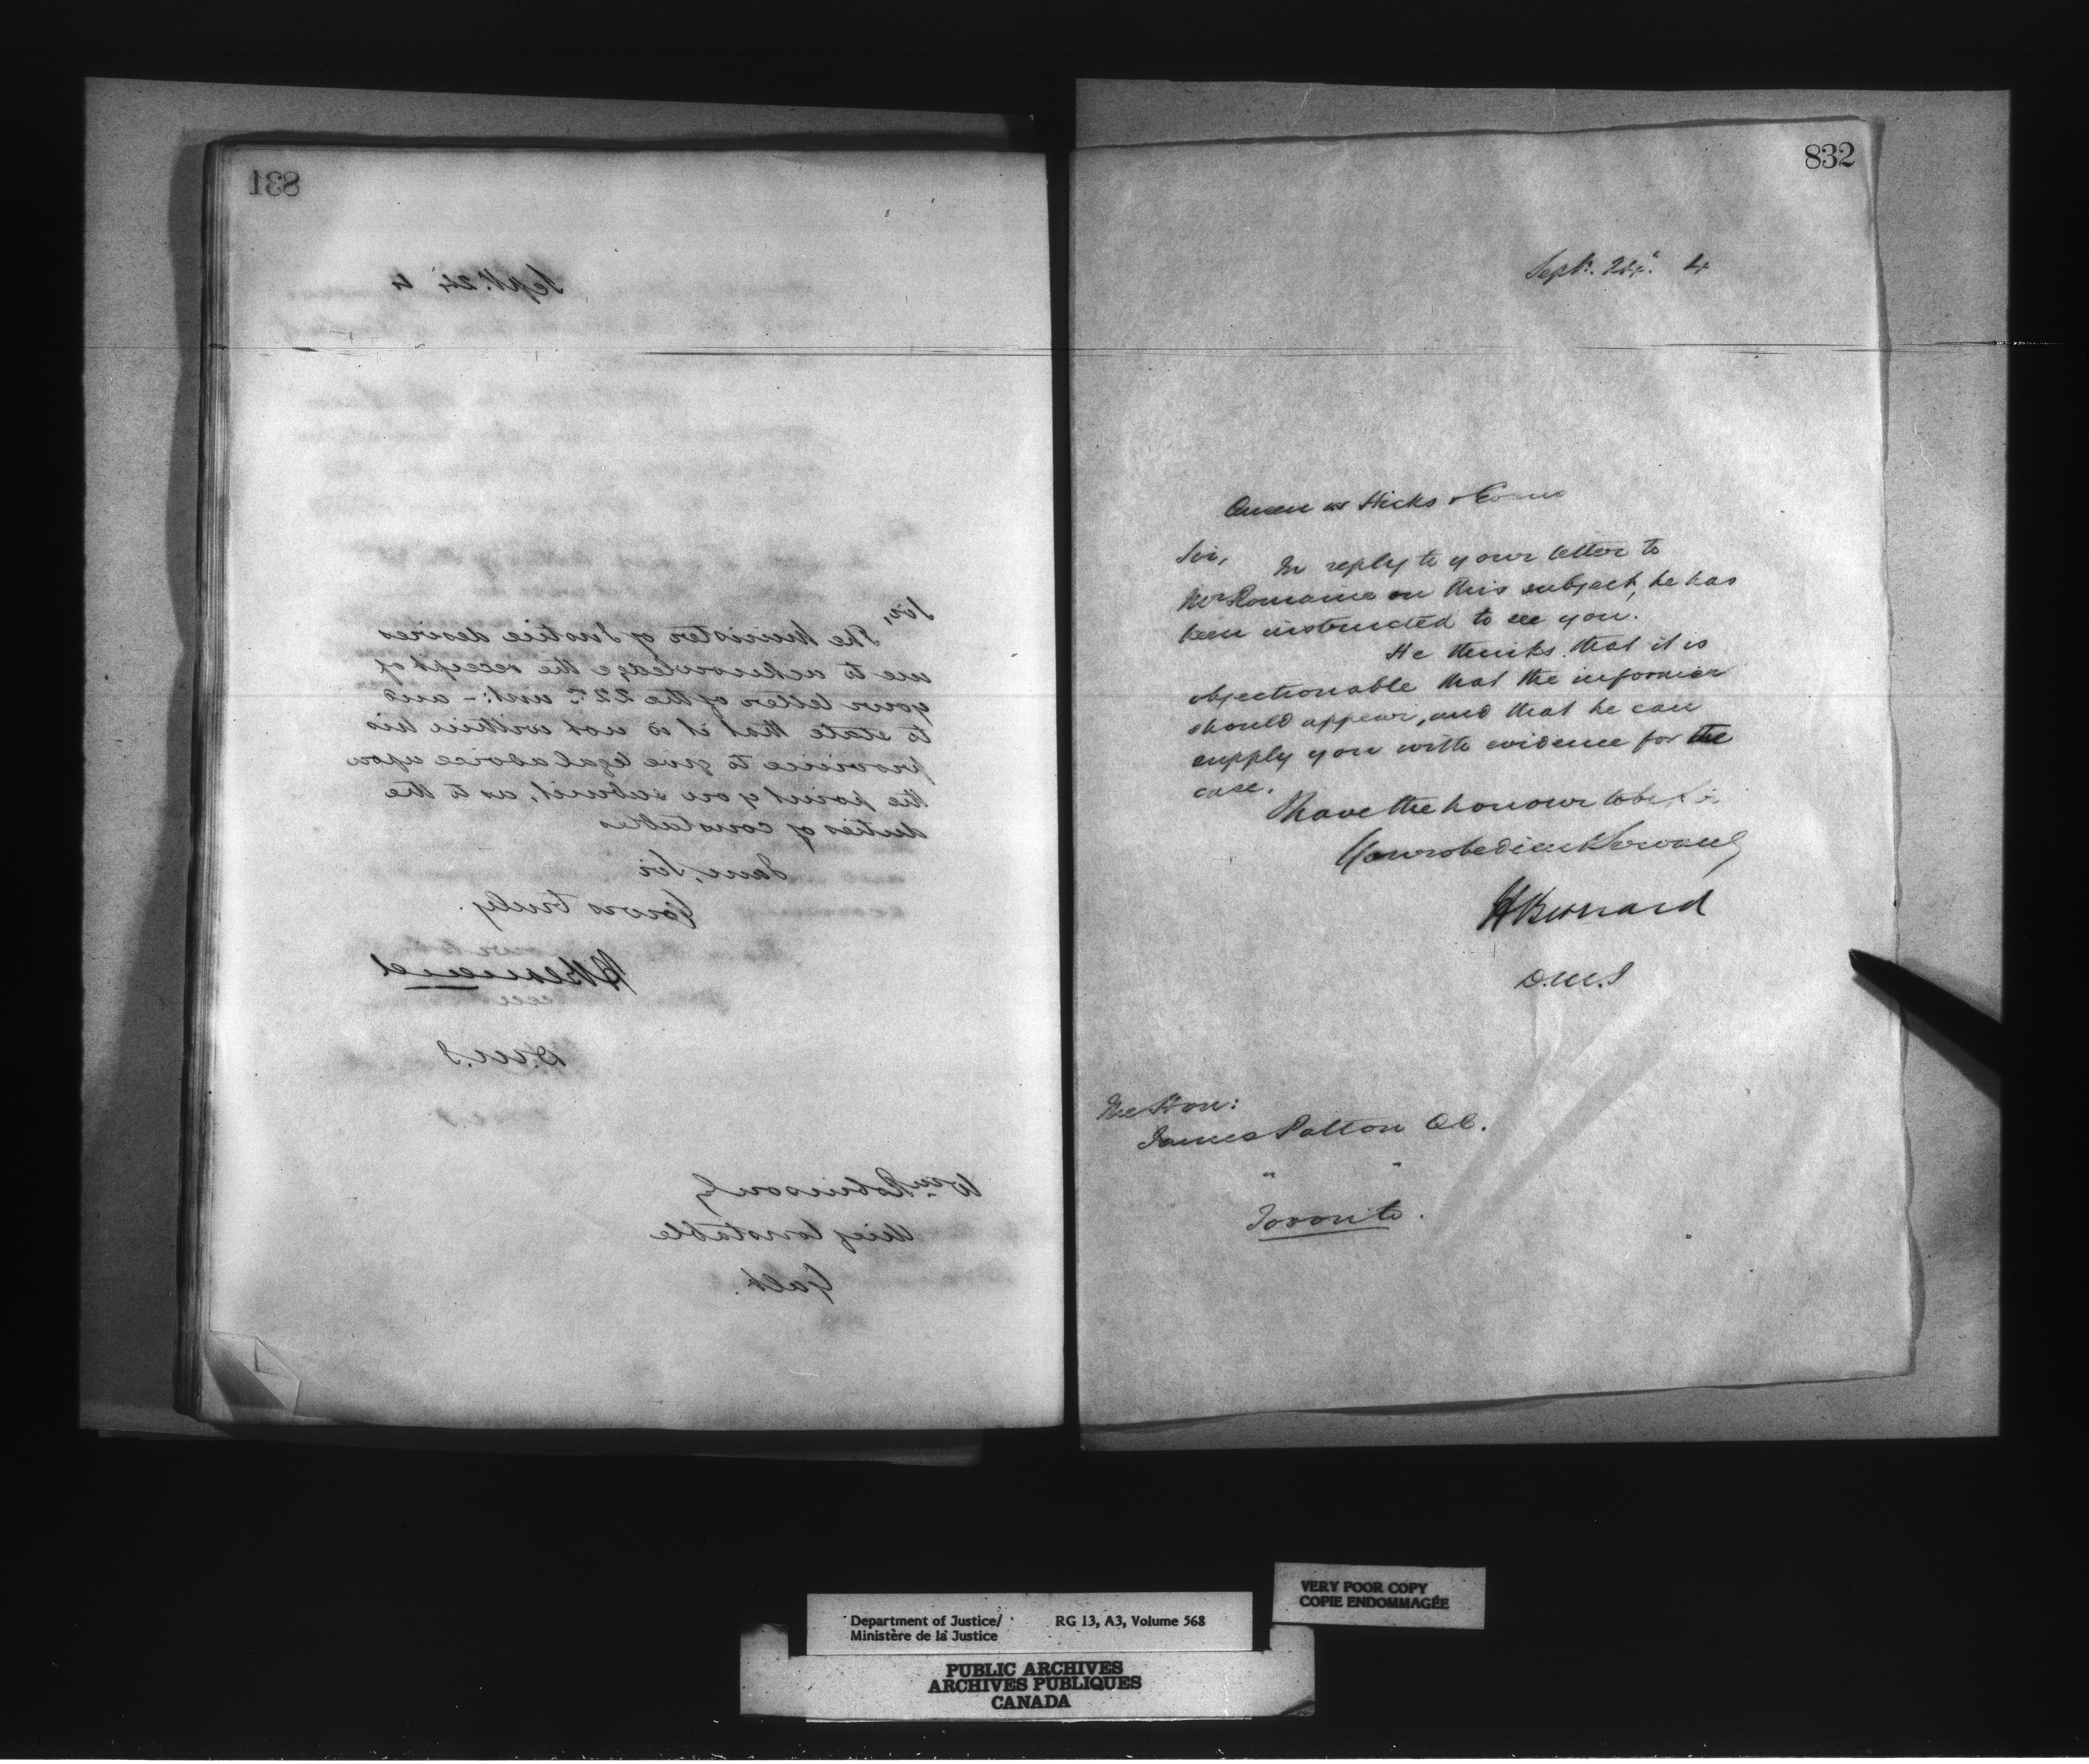 831
Sept. 24 4
Sir,
The Minister of Justice desires
me to acknowledge the receipt of
your letter of the 22d inst: - and
to state that it is not within his
province to give legal advice upon
the point you submit, as to the
duties of constables
I am, Sir
Yours truly.
H Bernard
D.M.J
Wm Robinson Esq
Chief Constable
Galt.
832
Sept. 24. 4
Queen vs Hicks & Evans
Sir, In reply to your letter to
Mr Romaine on this subject, he has
been instructed to see you.
He thinks that it is
objectionable that the informer
should appear, and that he can
supply you with evidence for the
case.
I have the honour to be Sir
Your obedient Servant
H Bernard
D.M.J
The Hon:
James Patton Q.C.
" "
Toronto.
VERY POOR COPY
COPIE ENDOMMAGÉE
Department of Justice/ RG 13, A3, Volume 568
Ministère de la Justice
PUBLIC ARCHIVES
ARCHIVES PUBLIQUES
CANADA